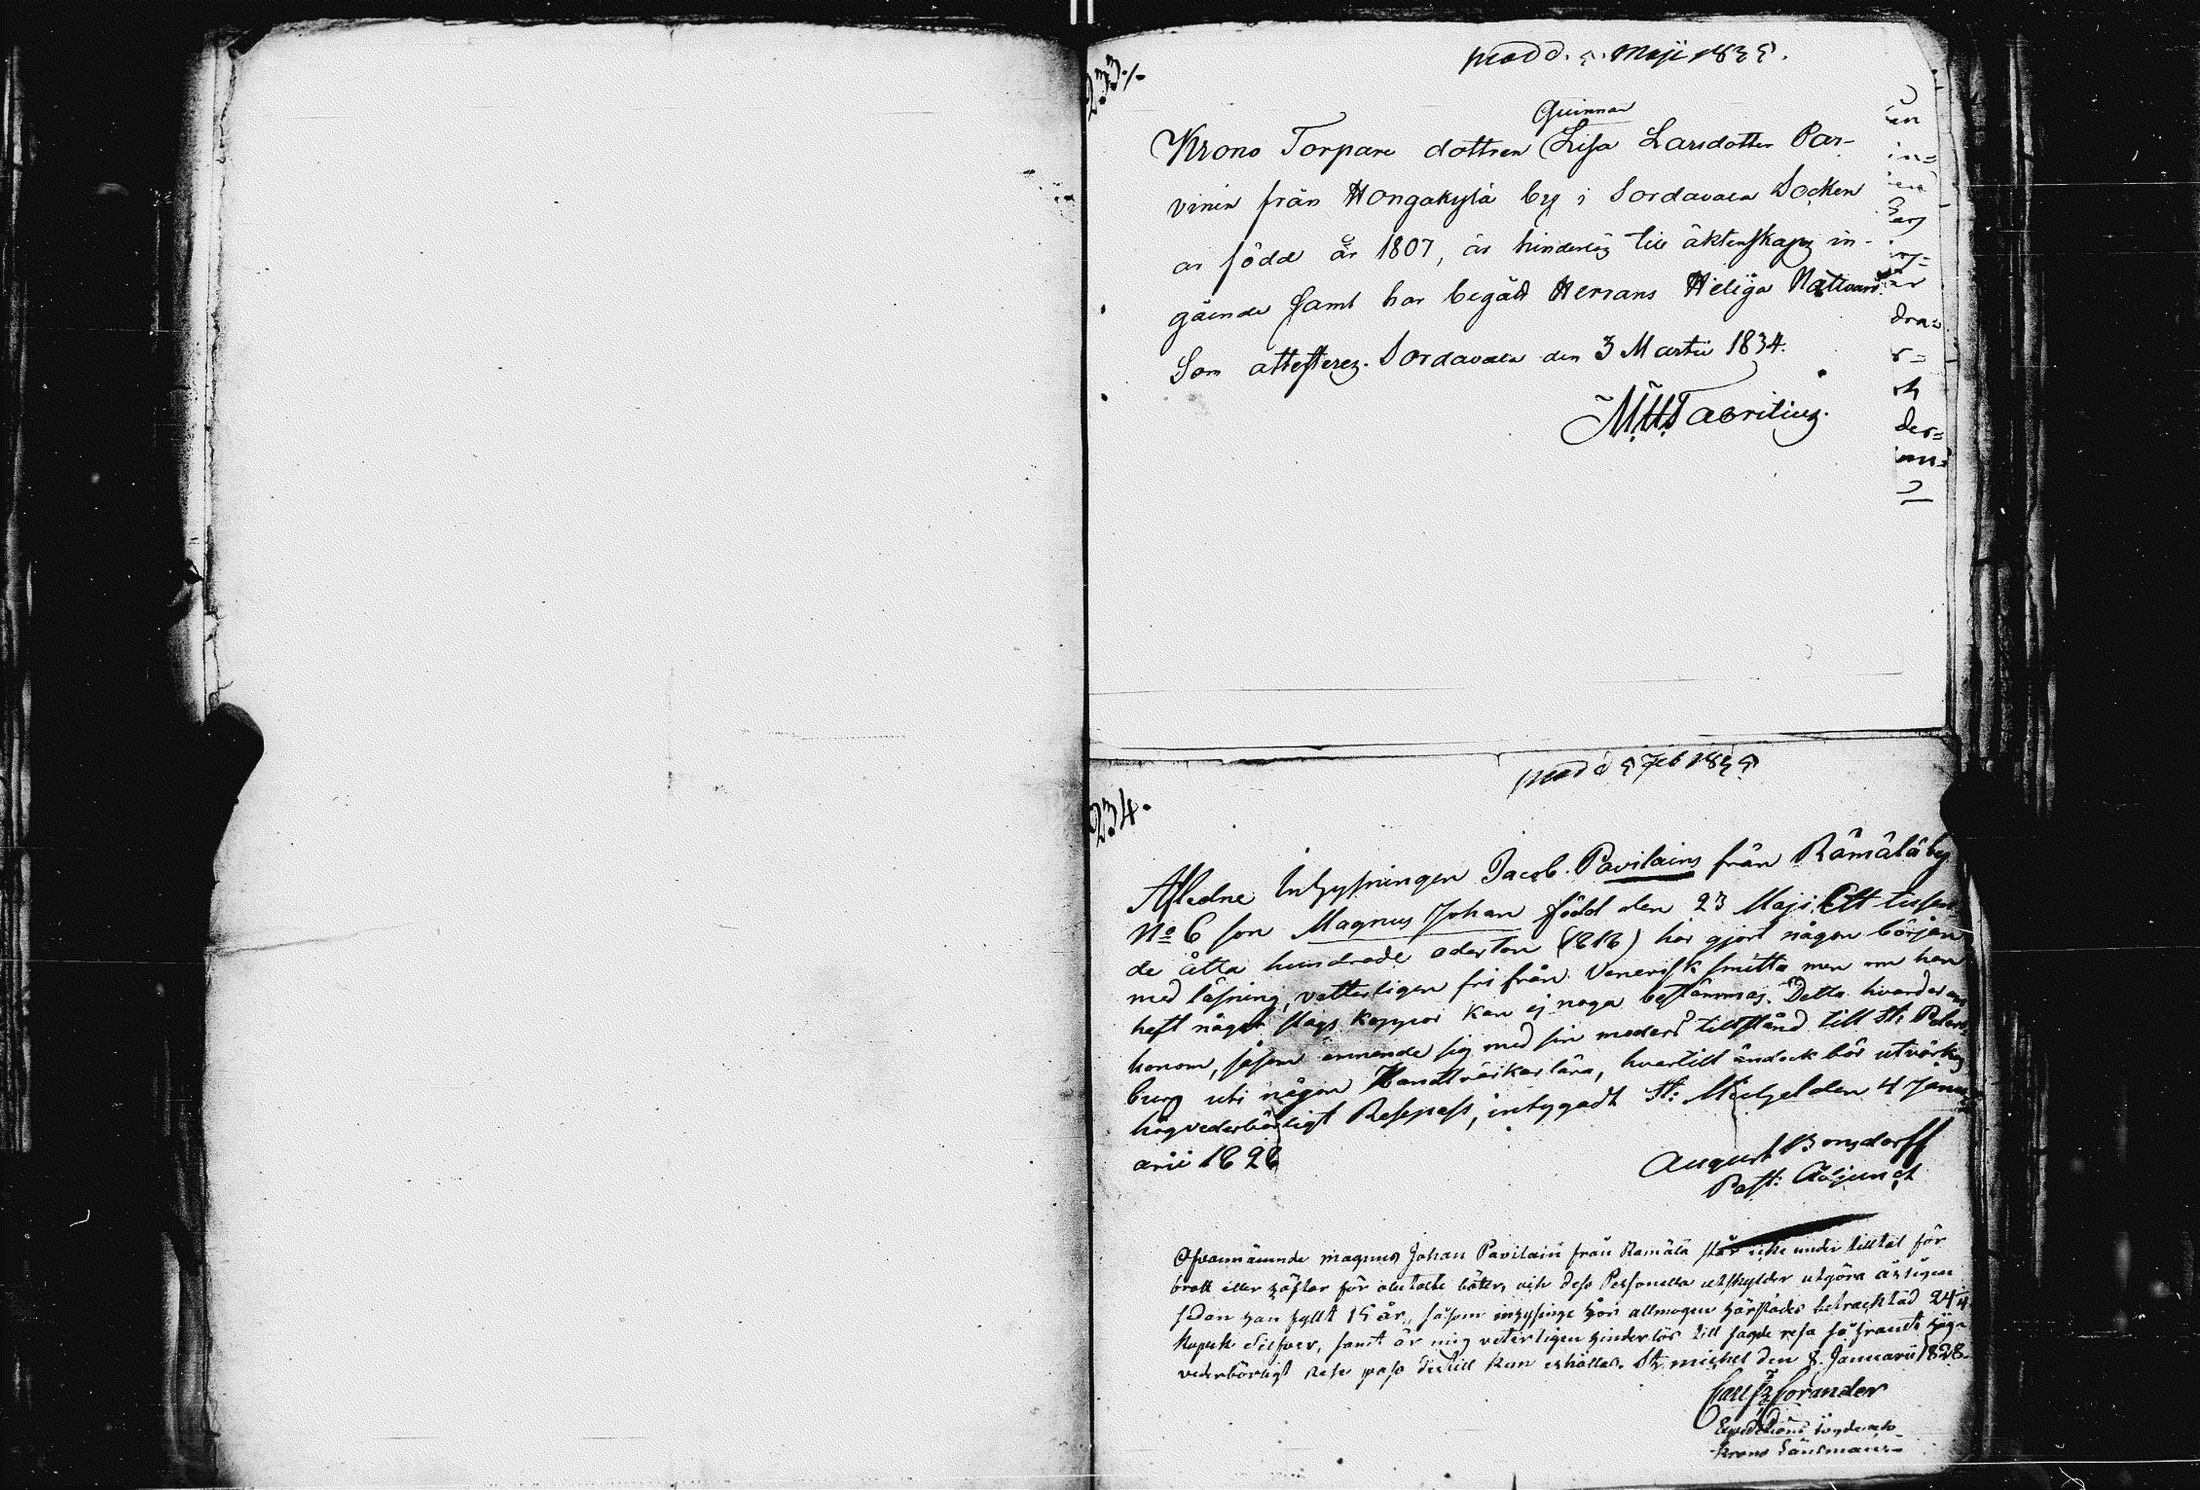 233.
Maji 1835.
Quinnan
Krono Torpare dottren Lisa Larsdotter Par-
vinen från Hongakylä by i Sordavala Socken
är född år 1807, är hinderlös till äktenskaps in-
gående samt har begådt Herrans Heliga Nattvard.
Som attesteras. Sordavala den 3 Martii 1834.
en
in=
dra=
r=
ch
der=
234.
Feb
Afledne Inhysningen Jacob Pavilains från Rämälä by
No 6 son Magnus Johan född den 23 Maji Ett tusen
de åtta hundrade aderton (1818) har gjort någon början
med läsning, vetterligen fri från Venerisk smitta men om han
haft något slags koppor kan ej noga bestämmas. Detta hvarder
honom, såsom ärnande sig med sin moders tillstånd till St: Peters
burg uti någon Handtvärkarlära, hvartill ändock bör utvärkas
högvederbörligt Resepass, intygadt St: Michel den 4 Janu
arii 1828
August Bonsdorff
Past: Adjunct
Ofvannämnde Magnus Johan Pavilain från Rämälä står icke under tilltal för
brott eller häftar för obetalte böter, och dess Personella utskylder utgöra årligen
sedan han fyllt 15 år, såsom inhysinge hos allmogen härstädes betracktad 24
kopek Silfver, samt är mig veterligen hinderlös till sagde resa så framt hög-
vederbörligt Rese pass dertill kan erhållas. St. Michel den 8. Januarii 1828.
Krono Länsman